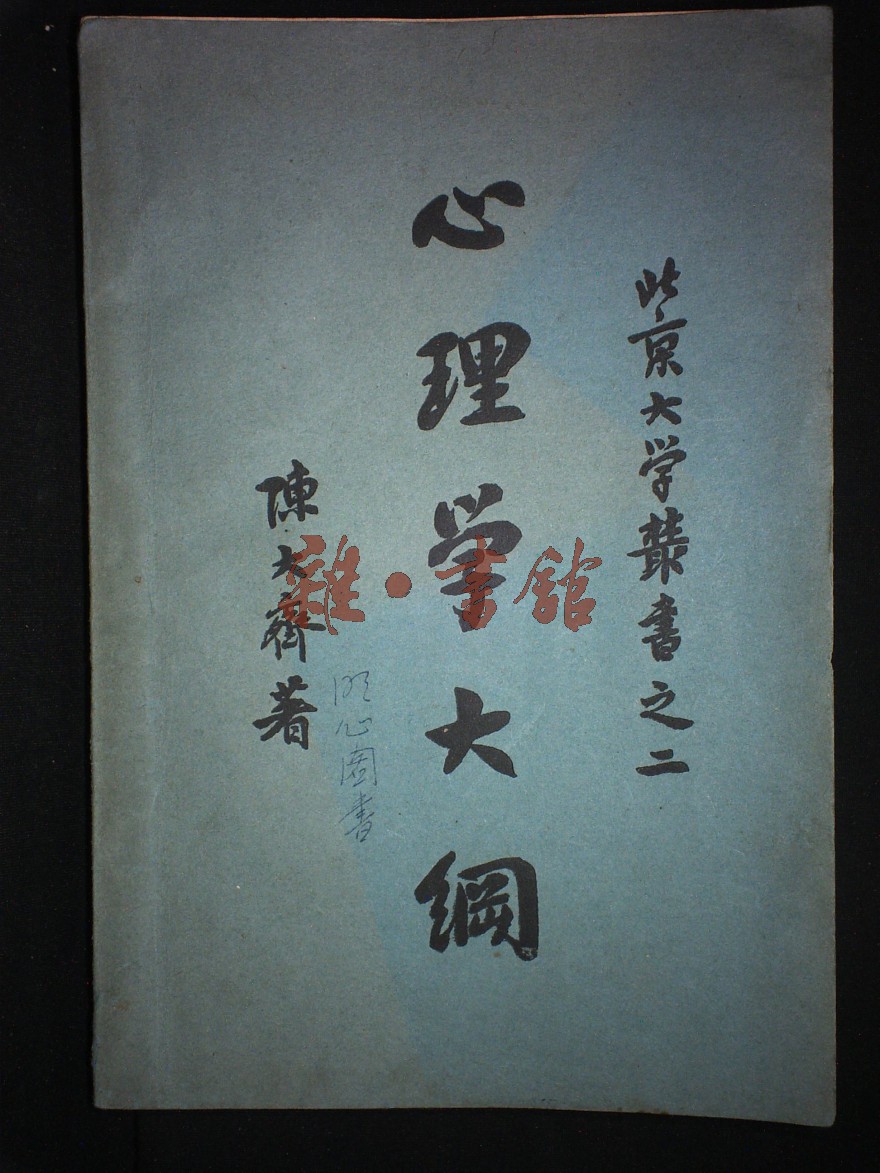 北京大学叢書之二
心理学大綱
陳大齊著
明心圖書
雜·書館